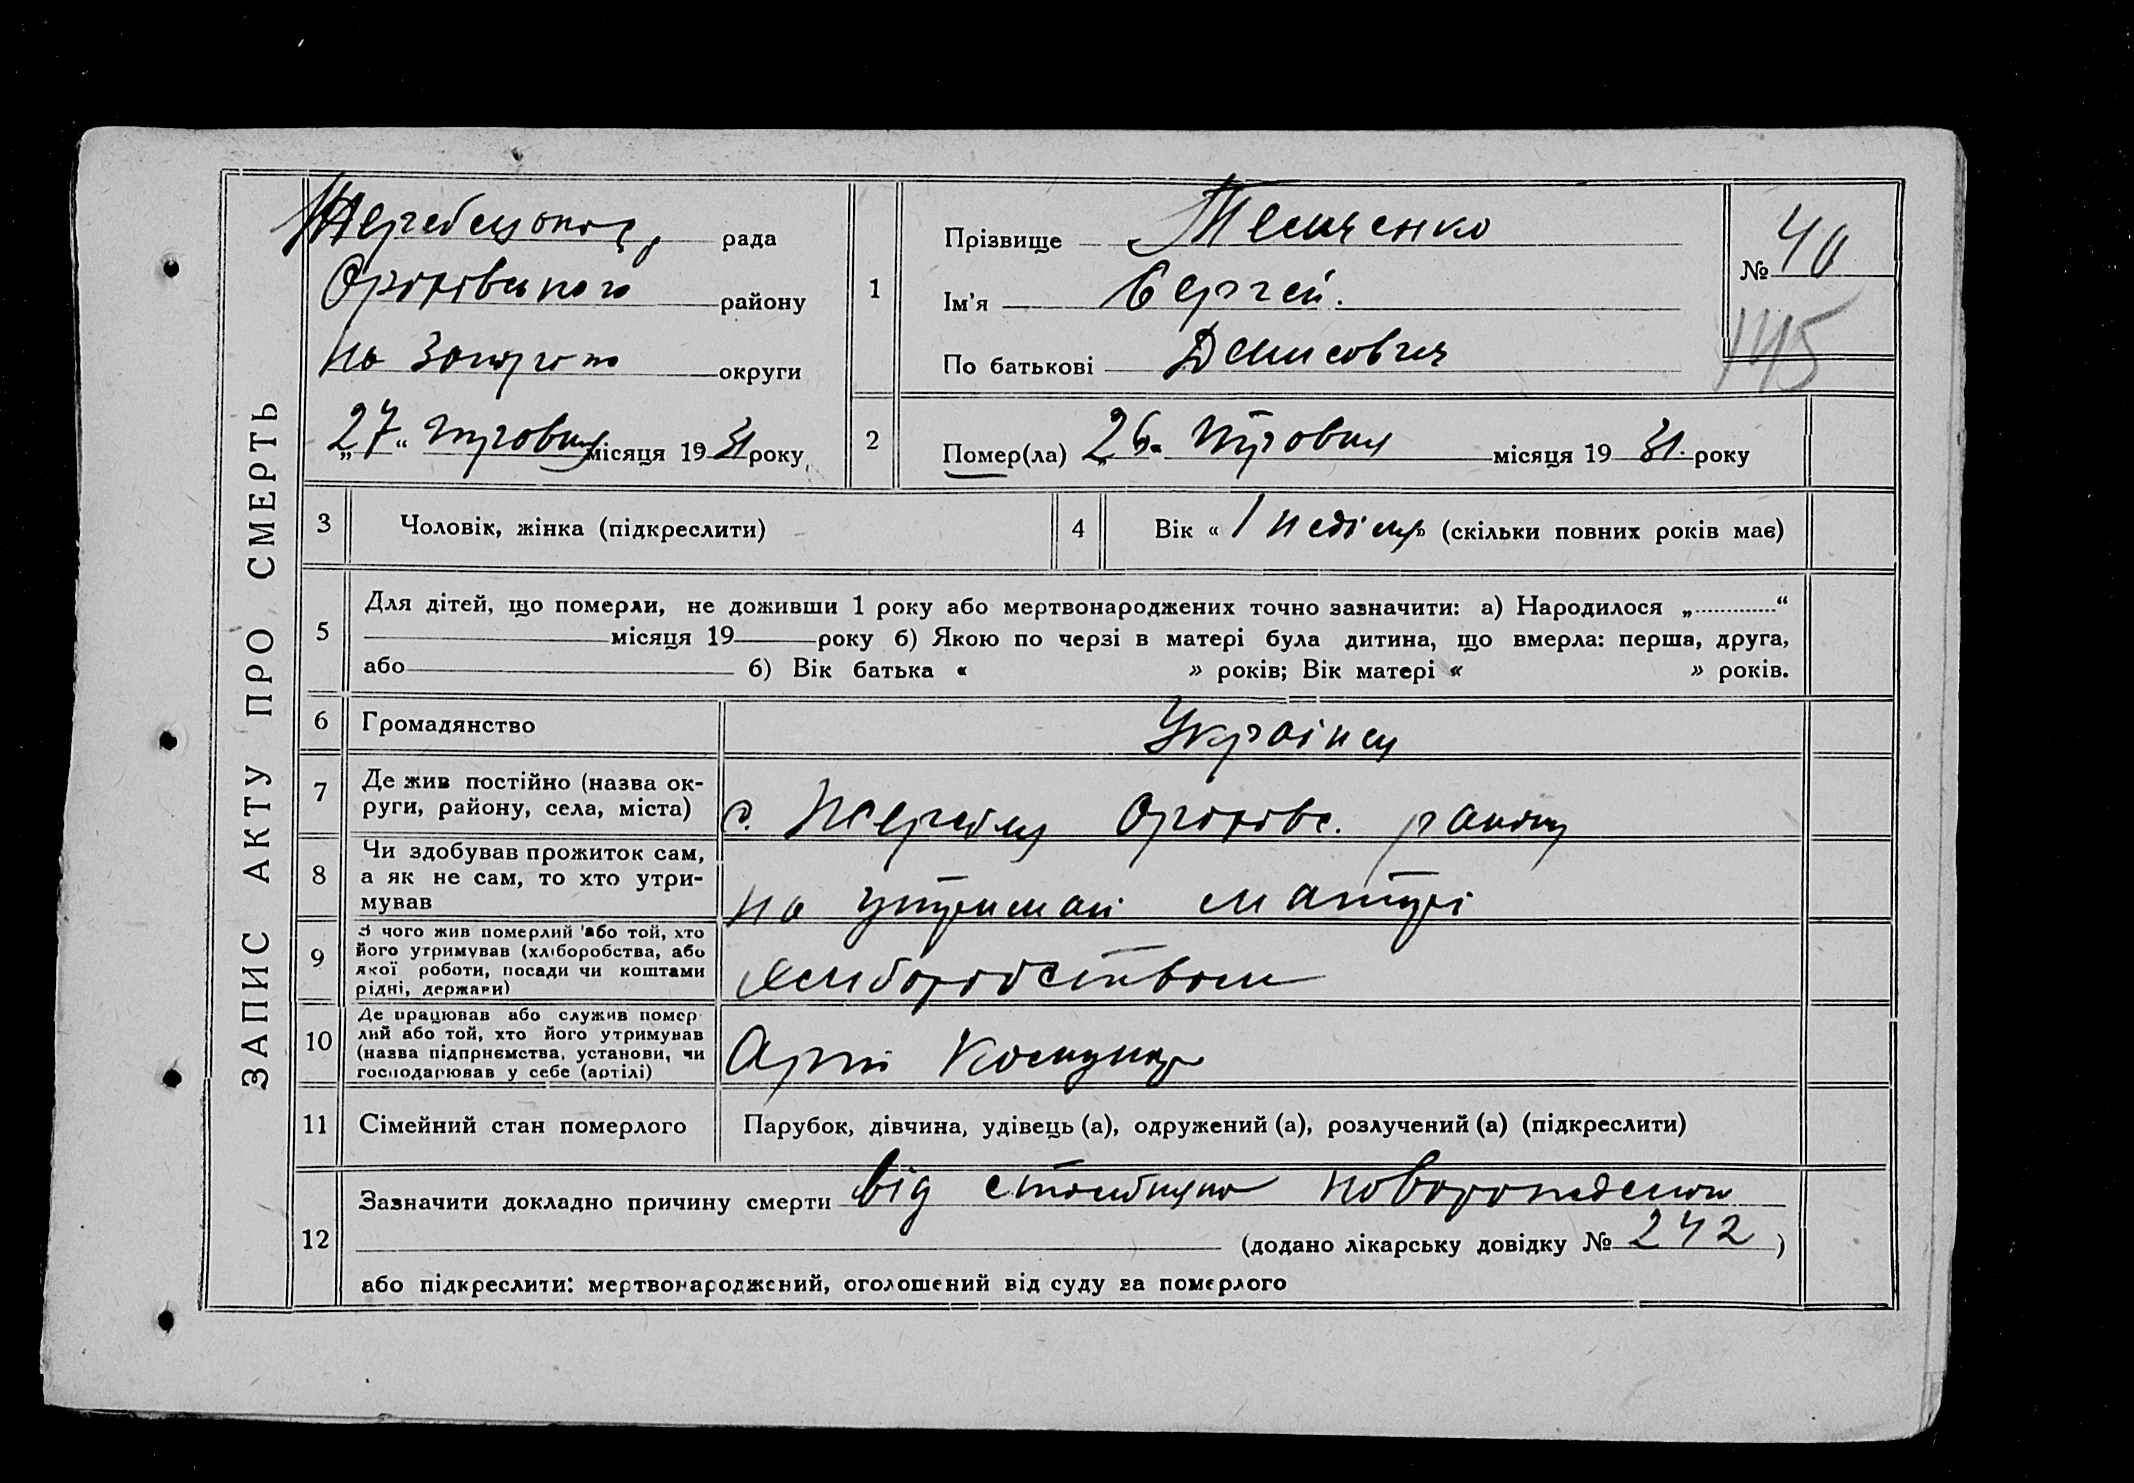 ЗАПИС АКТУ ПРО СМЕРТЬ
рада
Оріхівського району
на округи
„27“ місяця 1931 року
1
Прізвище
Ім'я Сергей.
По батькові Денисович
№ 40
145
2
Помер(ла) „26“ місяця 1931. року
3
Чоловік, жінка (підкреслити)
4
Вік « 1 неділя» (скільки повних років має)
5
Для дітей, що померли, не доживши 1 року або мертвонароджених точно зазначити: а) Народилося „............“
місяця 19 року б) Якою по черзі в матері була дитина, що вмерла: перша, друга,
або 6) Вік батька « » років; Вік матері « » років.
6
Громадянство
Українец
7
Де жив постійно (назва ок-
руги, району, села, міста)
с. Жеребец Оріхівс. району
8
Чи здобував прожиток сам,
а як не сам, то хто утри-
мував
на утриман матері
9
З чого жив померлий або той, хто
його утримував (хліборобства, або
якої роботи, посади чи коштами
рідні, держави)
10
Де працював або служив помер
лий або той, хто його утримував
(назва підприємства, установи, чи
господарював у себе (артілі)
Арт Комунар
11
Сімейний стан померлого
Парубок, дівчина, удівець (а), одружений (а), розлучений (а) (підкреслити)
12
Зазначити докладно причину смерти від
(додано лікарську довідку № 242)
або підкреслити: мертвонароджений, оголошений від суду за померлого